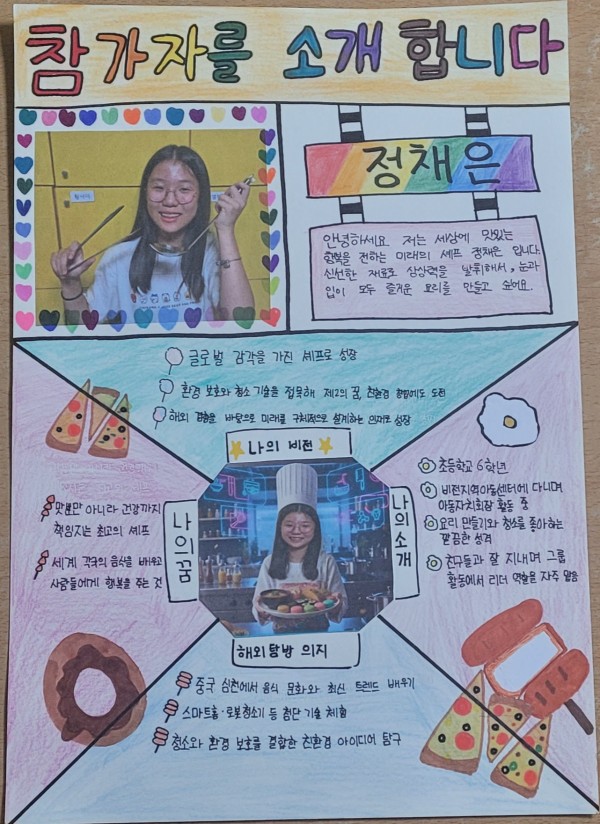 참가자를 소개 합니다
정채은
안녕하세요 저는 세상에 맛있는
행복을 전하는 미래의 셰프 정채은 입니다.
신선한 재료로 상상력을 발휘해서, 눈과
입이 모두 즐거운 요리를 만들고 싶어요.
글로벌 감각을 가진 셰프로 성장
환경 보호와 청소 기술을 접목해 제2의 꿈, 친환경 창업에도 도전
해외 경험을 바탕으로 미래를 구체적으로 설계하는 인재로 성장
나의 비전
나의 꿈
맛뿐만 아니라 건강까지
책임지는 최고의 셰프
세계 각국의 음식을 배우고
사람들에게 행복을 주는 것
나의 소개
초등학교 6학년
비전지역아동센터에 다니며
아동자치회장 활동 중
요리 만들기와 청소를 좋아하는
깔끔한 성격
친구들과 잘 지내며 그룹
활동에서 리더 역할을 자주 맡음
해외탐방 의지
중국 심천에서 음식 문화와 최신 트렌드 배우기
스마트홈·로봇청소기 등 첨단 기술 체험
청소와 환경 보호를 결합한 친환경 아이디어 탐구